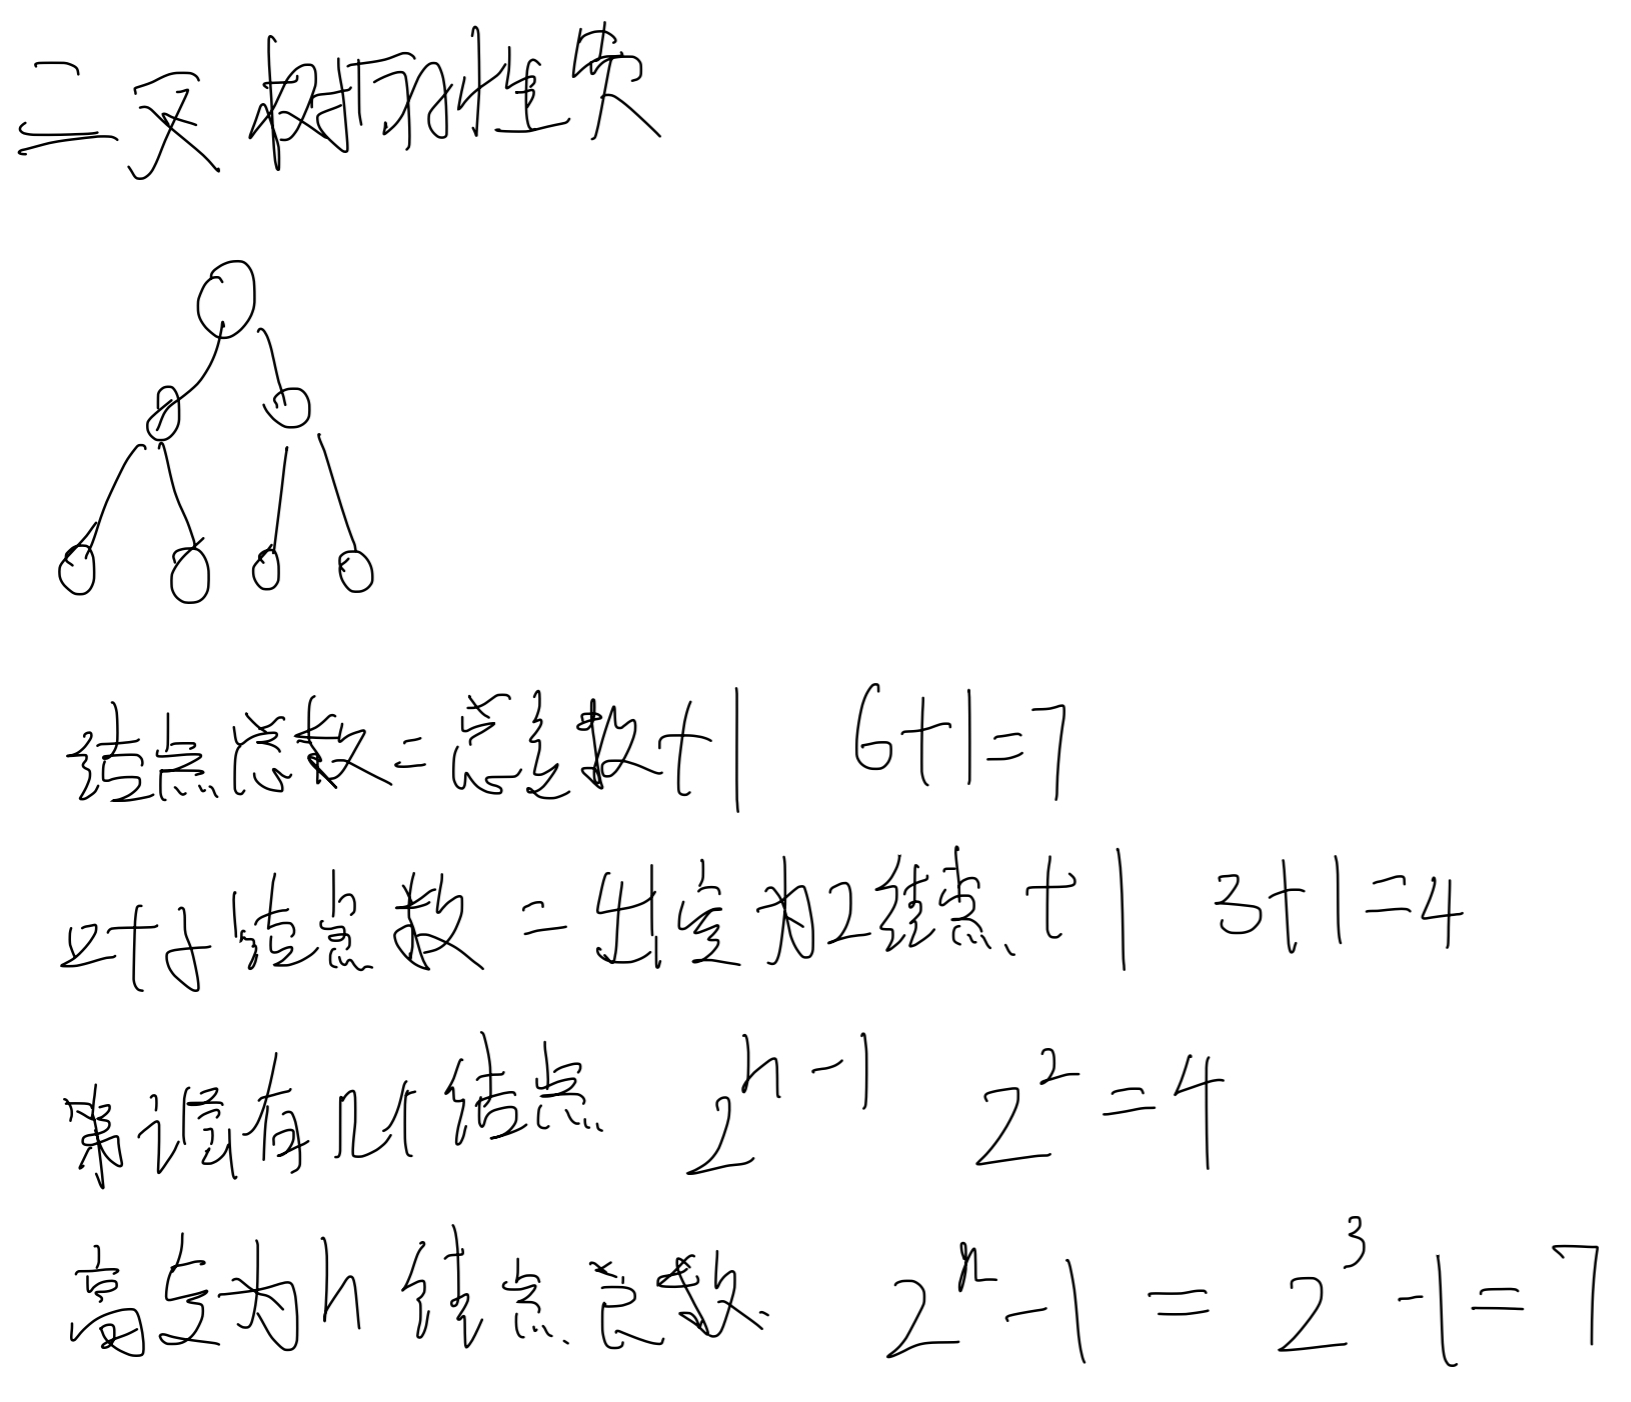 二叉树的性质
结点总数=总度数+1 6+1=7
叶子结点数=出度为2结点+1 3+1=4
第 层有几个结点 2^h-1 2^2=4
高度为h 结点总数 2^h-1=2^3-1=7